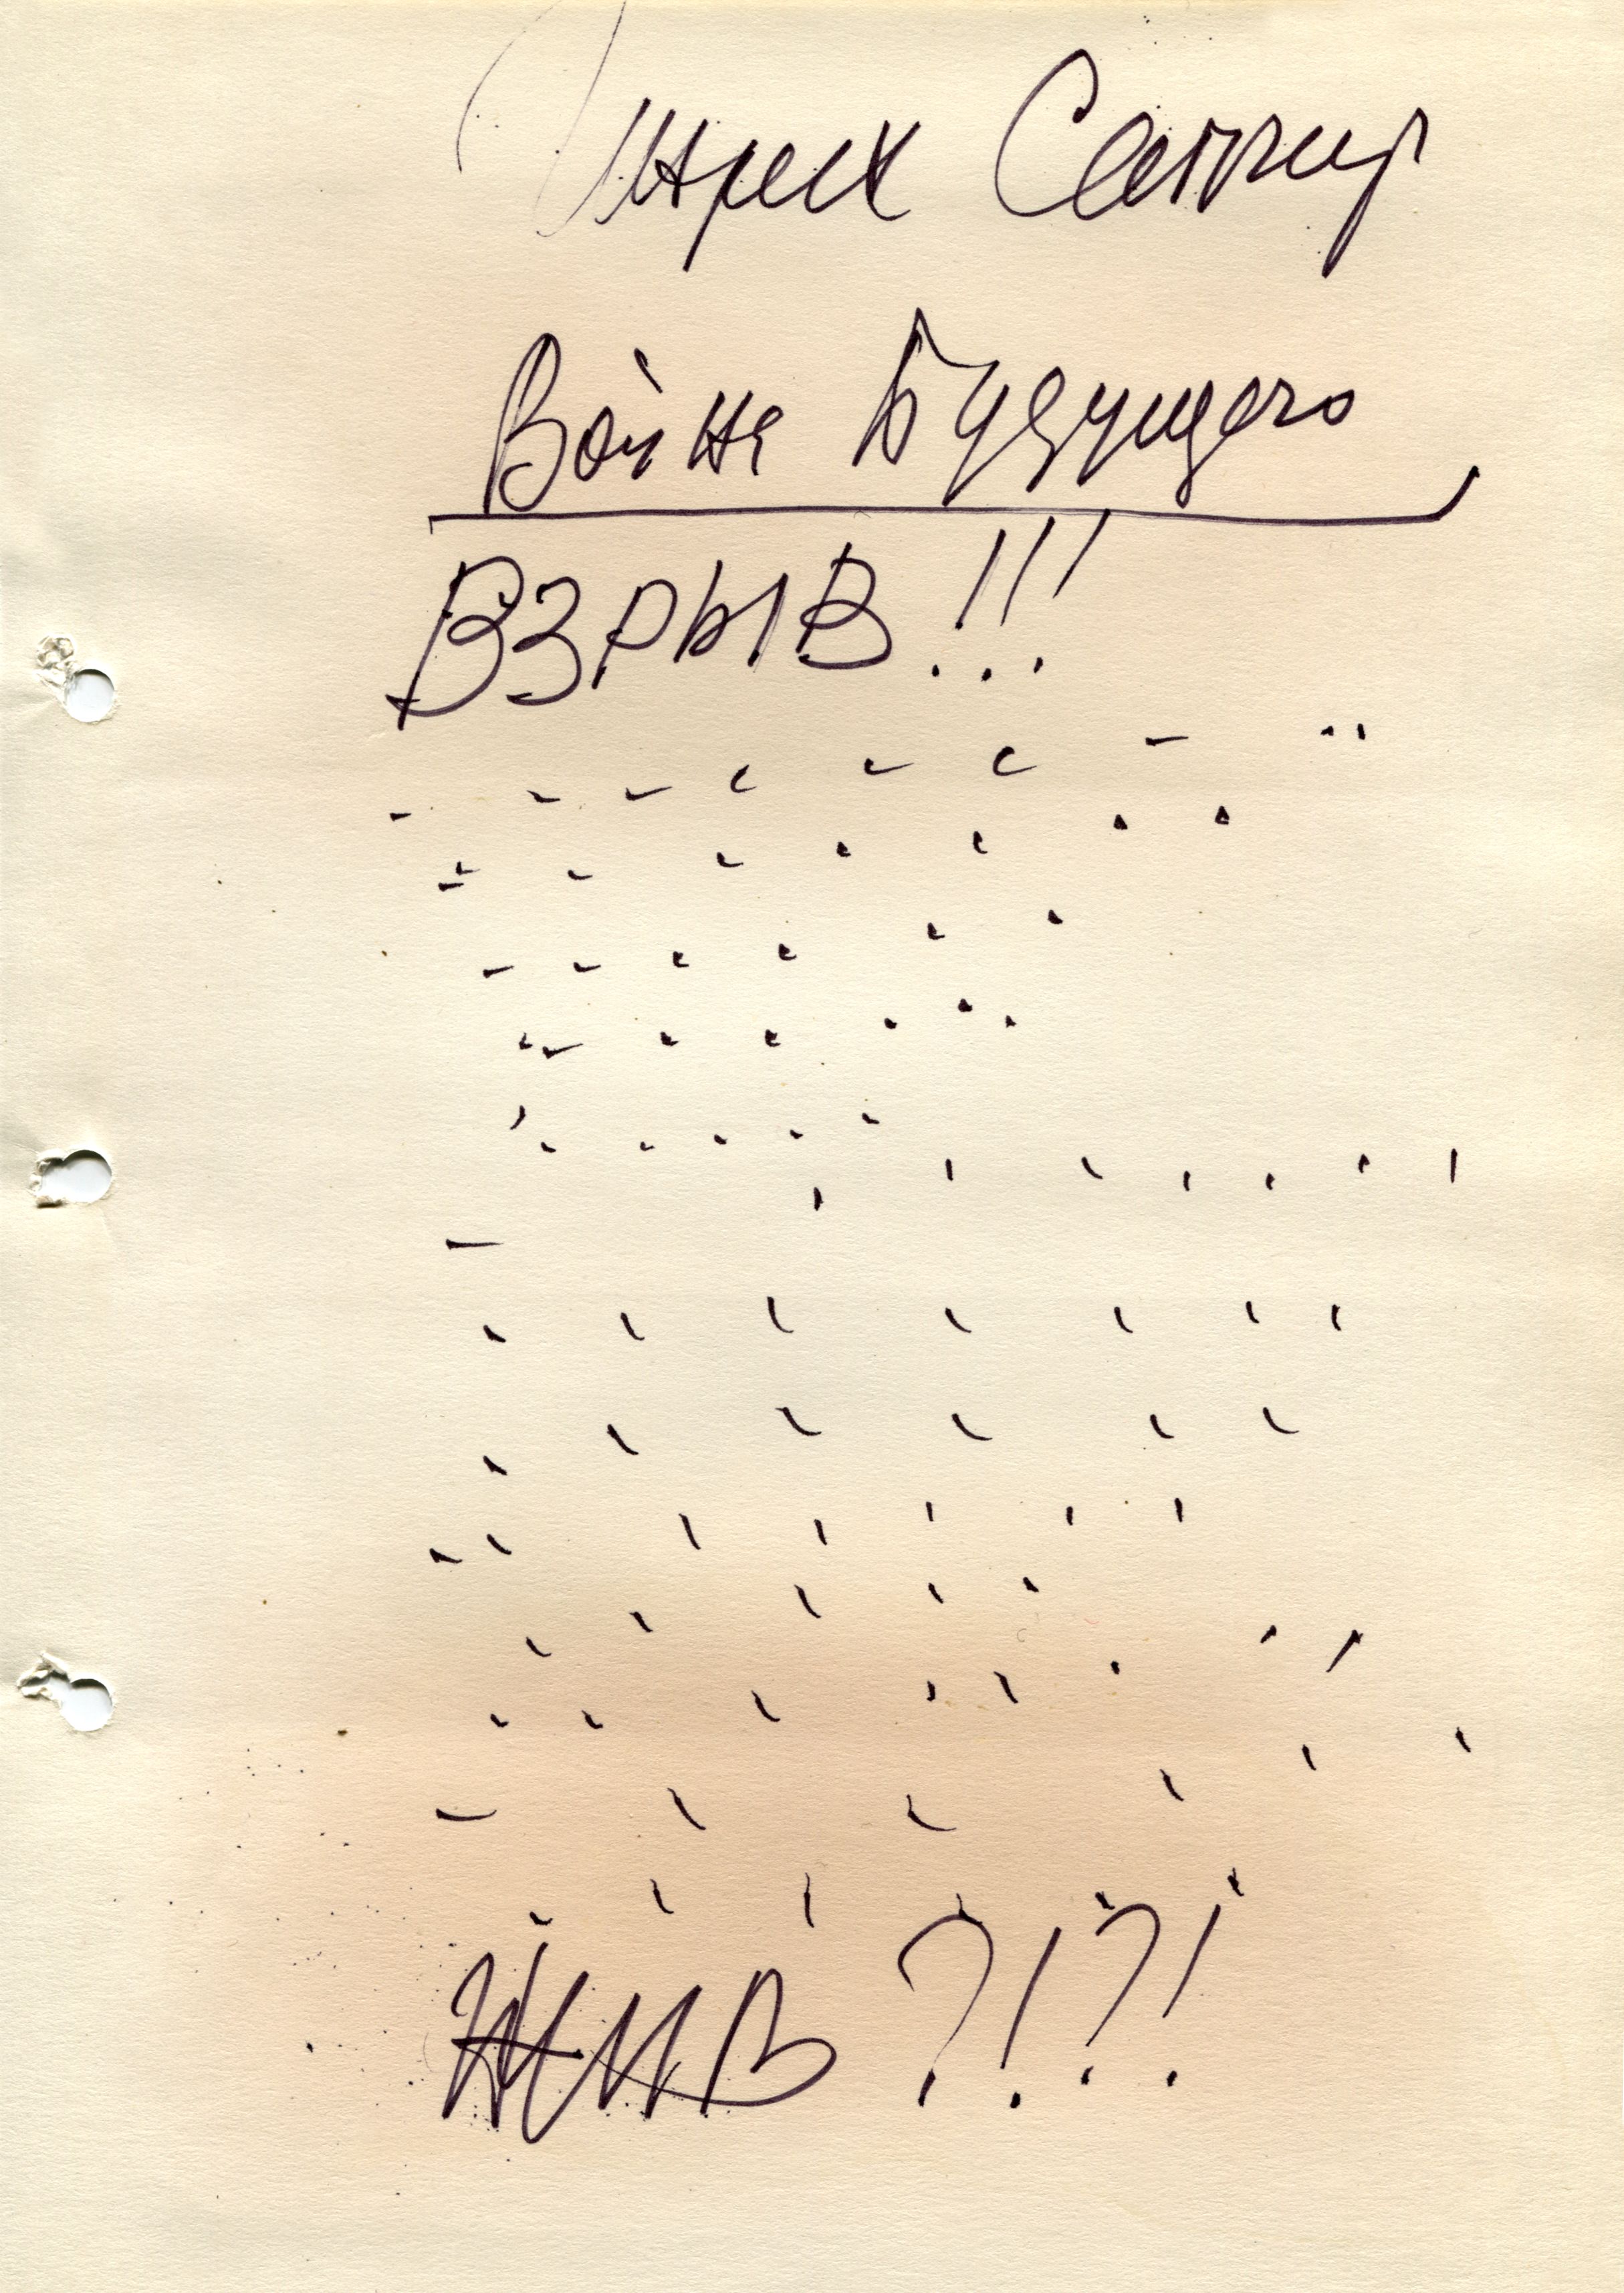 Генрих Сапгир
Война Будущего
ВЗРЫВ!!!
ЖИВ?!?!